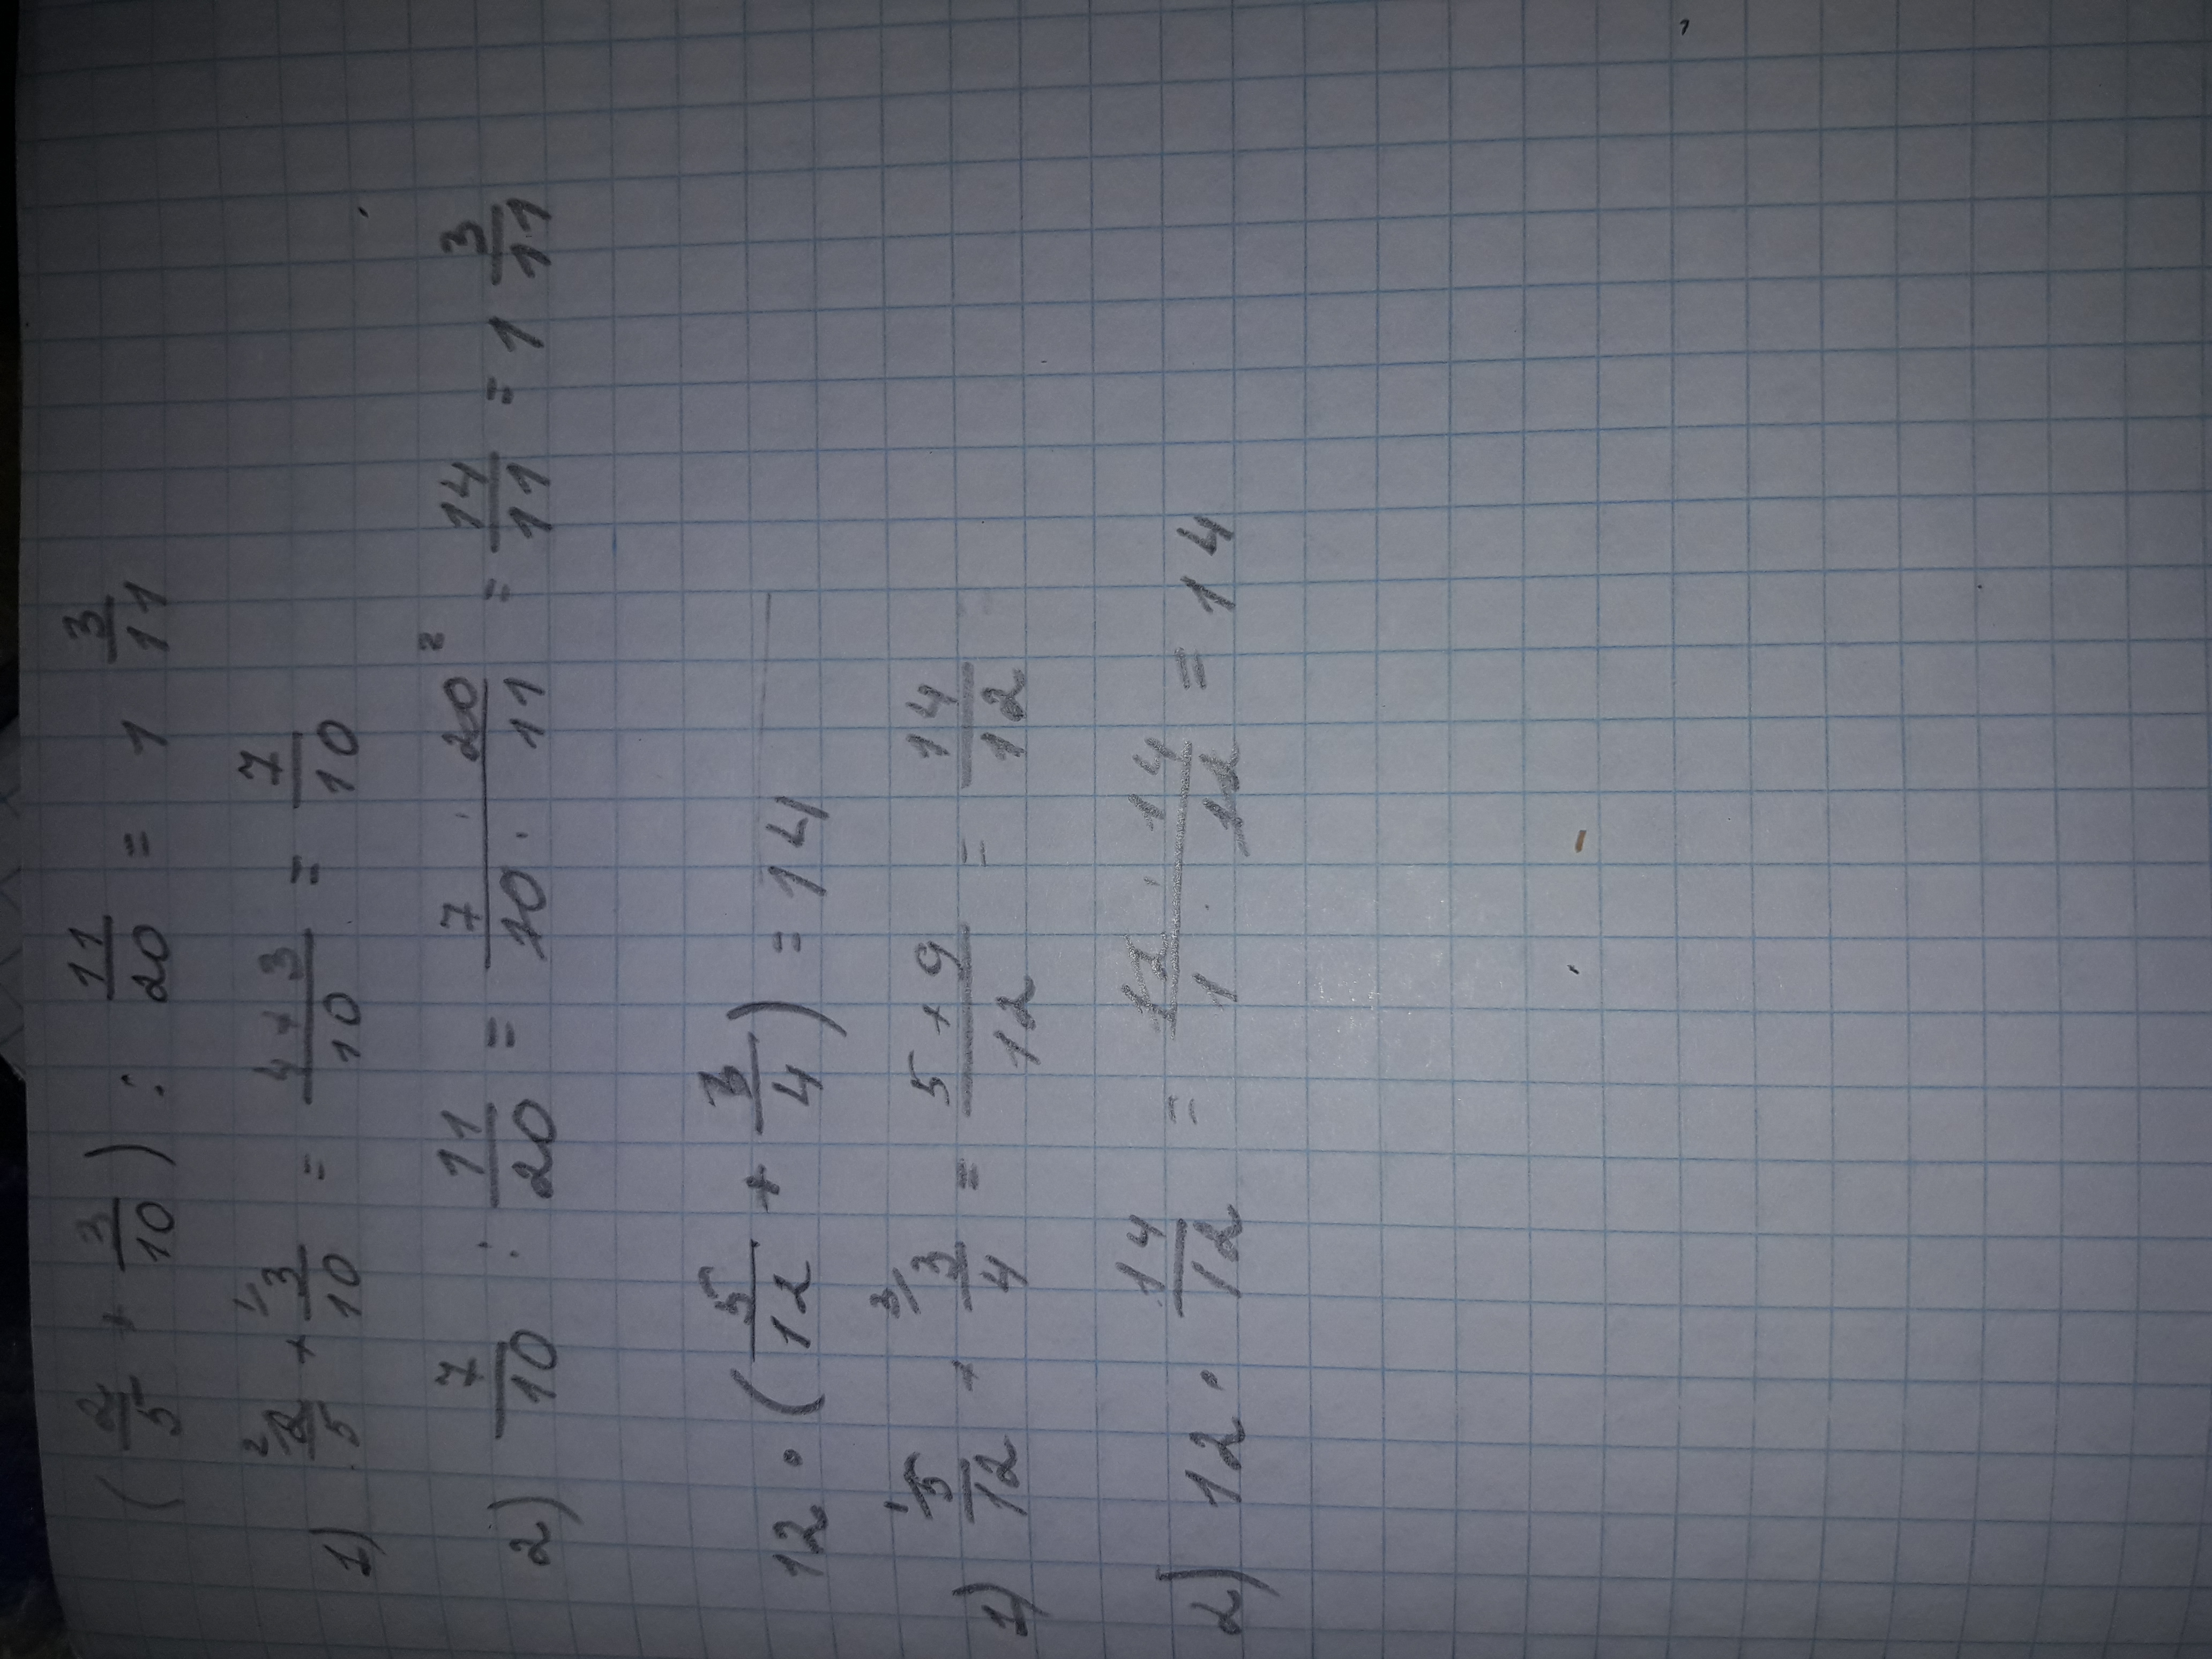 (2/5 + 3/10) : 11/20 = 1 3/11
1) 2/5 ² + 3/10 ¹ = 4+3/10 = 7/10
2) 7/10 : 11/20 = 7 · 20 ²/10 · 11 = 14/11 = 1 3/11
12 · (5/12 + 3/4) = 14
1) 5/12 ¹ + 3/4 ³ = 5+9/12 = 14/12
2) 12 · 14/12 = 12 · 14/1 · 12 = 14